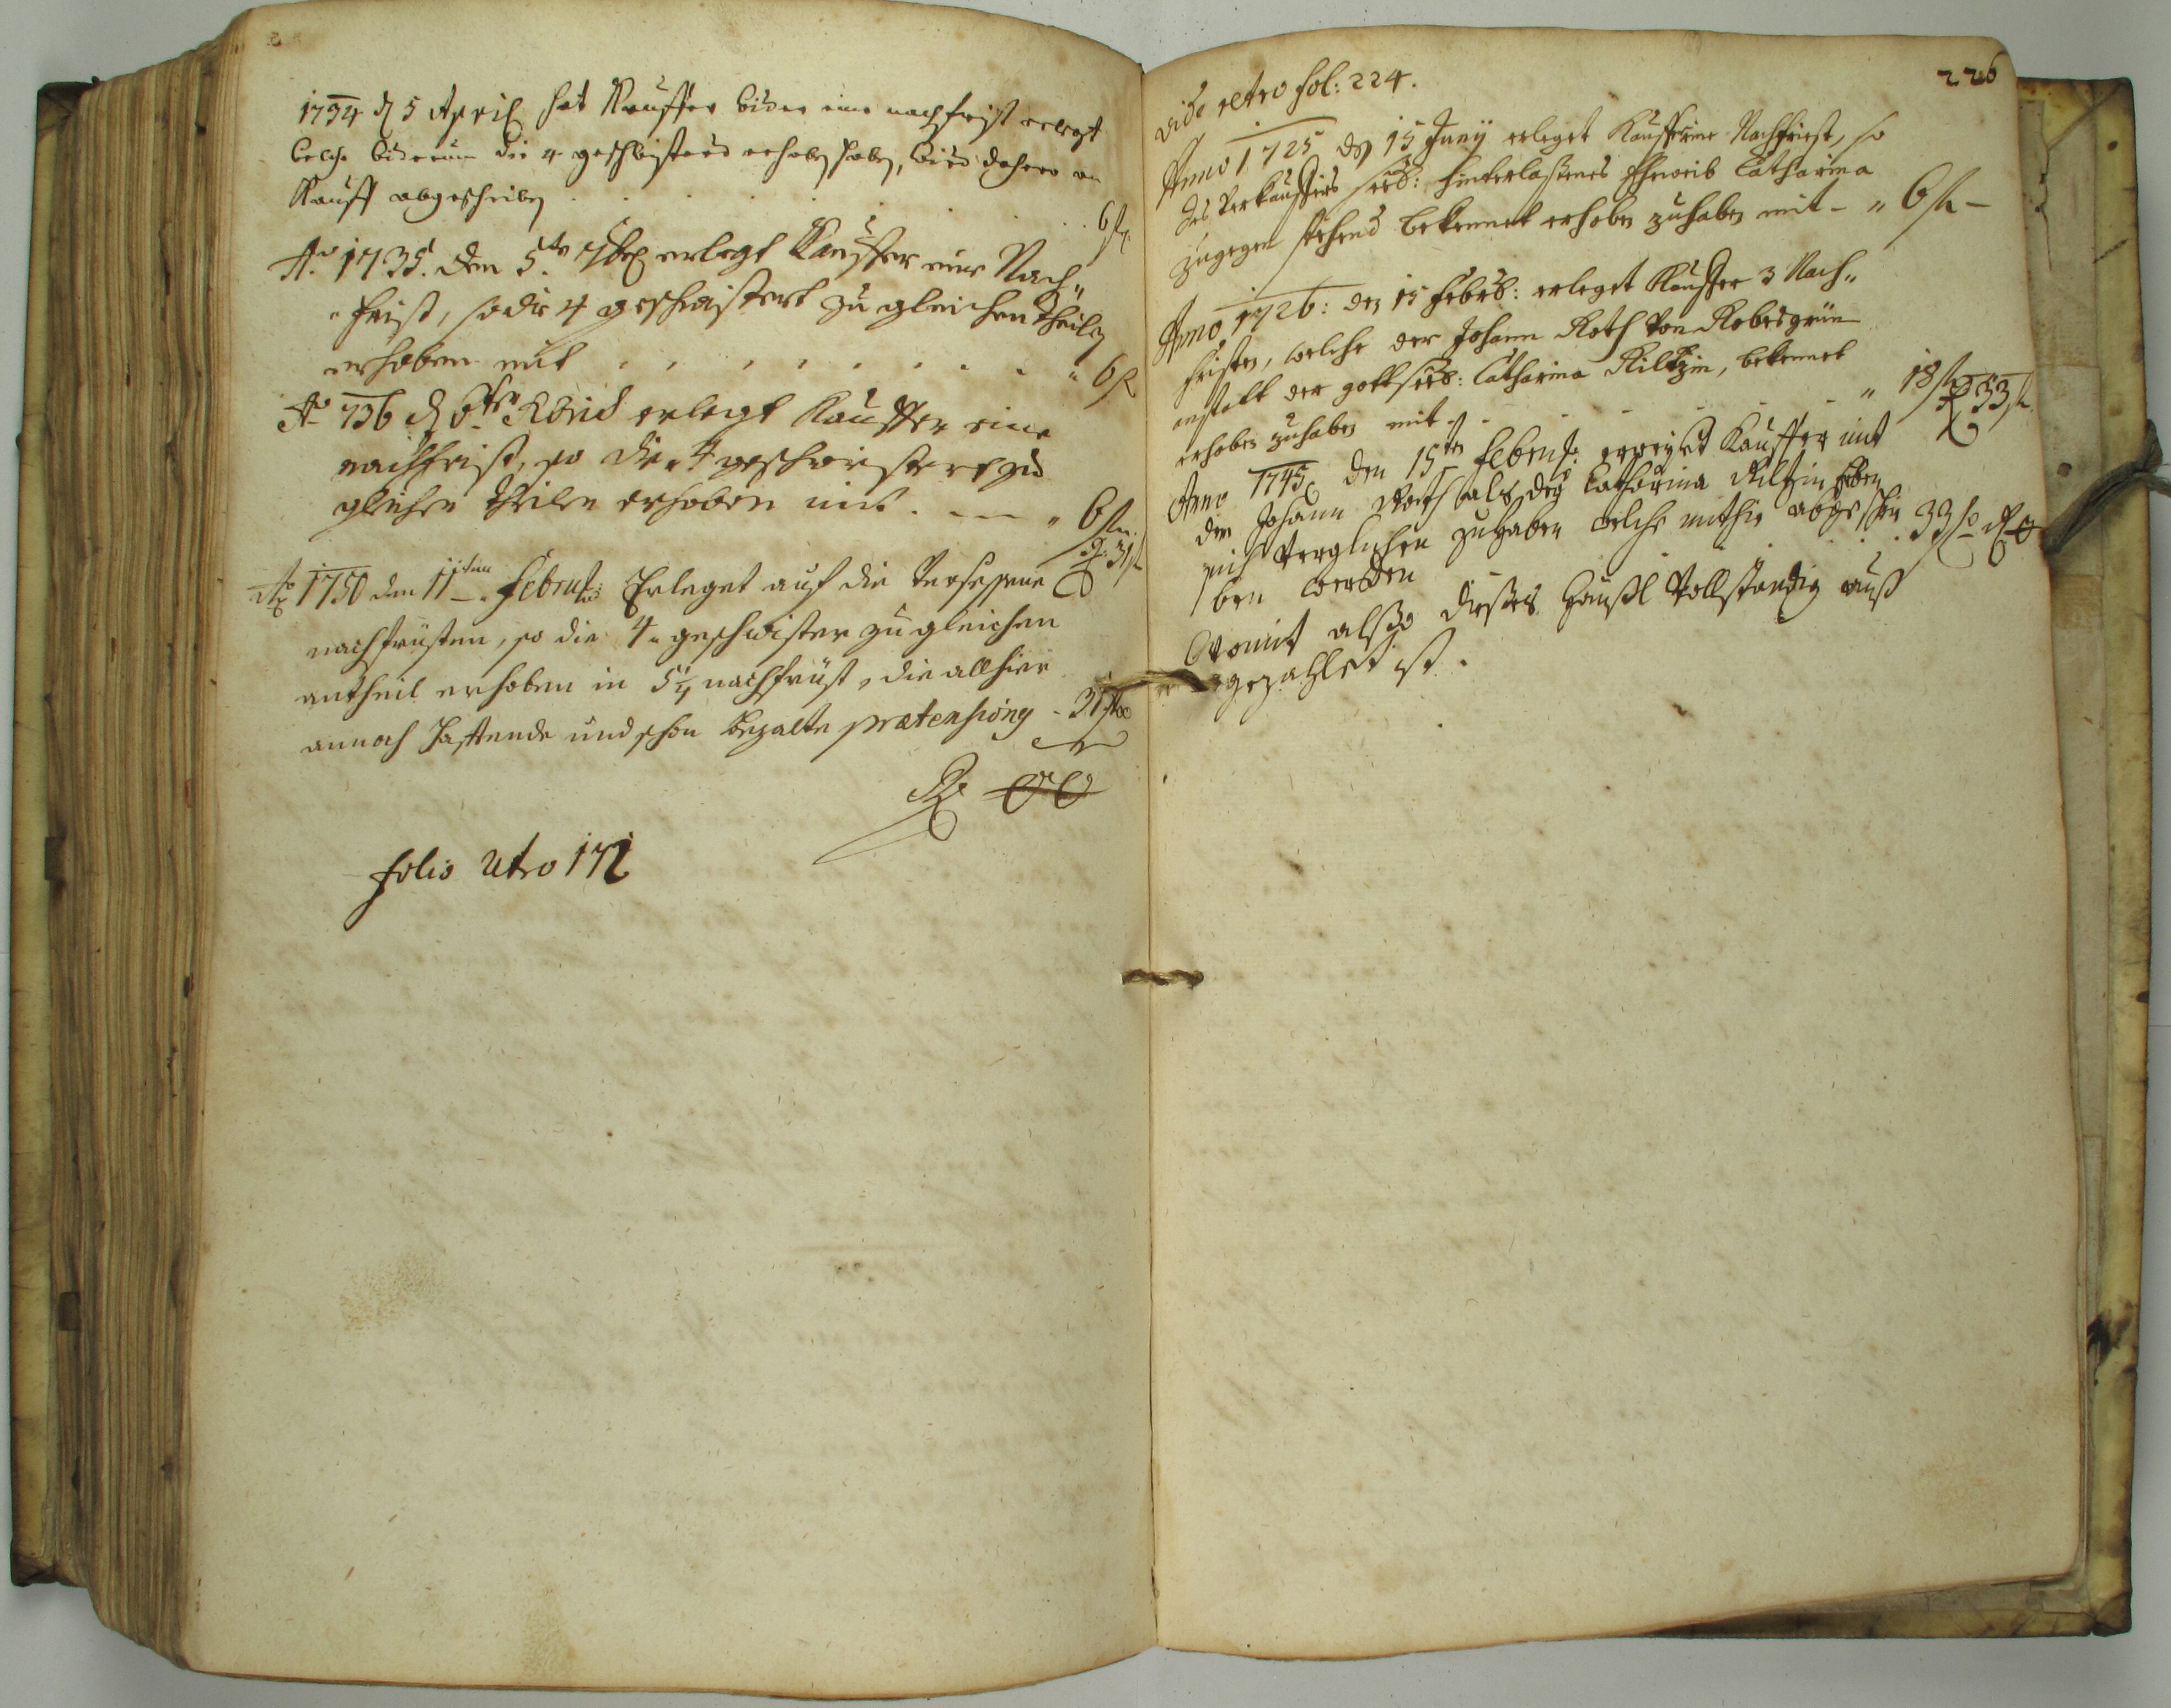 1734 d 5 April hat Kauffer wider eine nachfrist erlegt
welche widerumb die 4 geschwisterd erhoben haben, wird dahero an
Kauff abgeschriben . . . . . . 6 fl
Ao 1735. den 5ten 7br erlegt Kauffer eine Nach„
„frist, so die 4 geschwistert zu gleichen theilen
erhoben mit . . . . . . . . „ 6 fl
Ao 736 d erlegt Kauffer eine
nachfrist, so die 4 geschwistert zu
gleichen theilen erhoben mit . — „ 6 fl
R: 31 fl
Ao 1750 den 11ten Febru: Erleget auf die Versessene
nachfrüsten, so die 4 geschwister zu gleichen
antheil erhoben in 5¼ nachfrüst, die allhier
annoch haftende und schon bezalte praetensionen - 31 fl
R 00
folio Utro 171
226
vide retro fol: 224.
Anno 1725 den 15 Juny erleget Kauffer eine Nachfrist, so
des Verkauffers seel: hinterlaßenes Eheweib Catharina
zugegen stehend bekennet erhoben zuhaben mit - „ 6 fl -
Anno 1726: den 15 Febr: erleget Kauffer 3 Nach„
fristen, welche der Johann Roth von Robesgrün
anstatt der gottseel: Catharina Kiltzin, bekennet
erhoben zuhaben mit . . . . . „ 18 fl
R 33 fl.
Anno 1745 den 15ten Februar: erweyst Kauffer mit
den Johann Roth als der Catharina Kiltzin Erben
sich verglichen zu haben welche mithin abgeschri
ben werden . . . 33 fl R 0
Womit also dießes Häußl Vollständig auß
gezahlet ist.